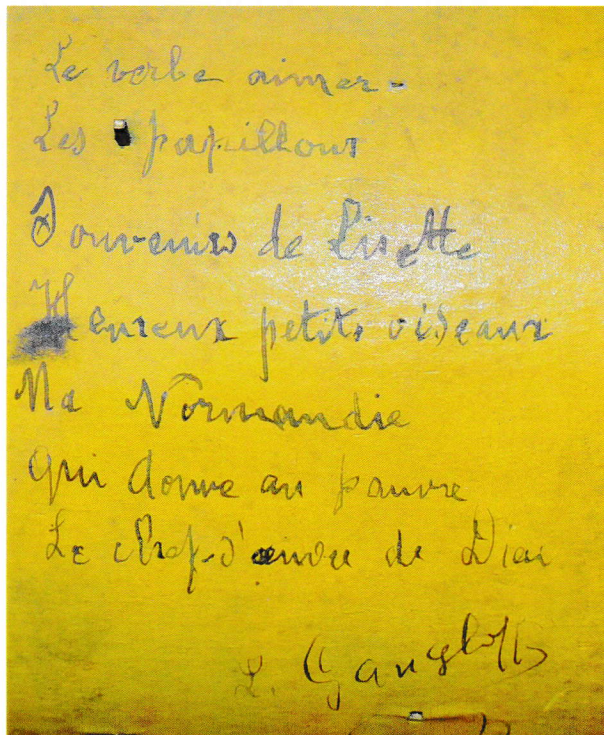 Le verbe aimer-
Les papillons
Souvenirs de Lisette
Heureux petits oiseaux
Ma Normandie
Qui donne au pauvre
Le chef-d'œuvre de Dieu
L. Gangloff